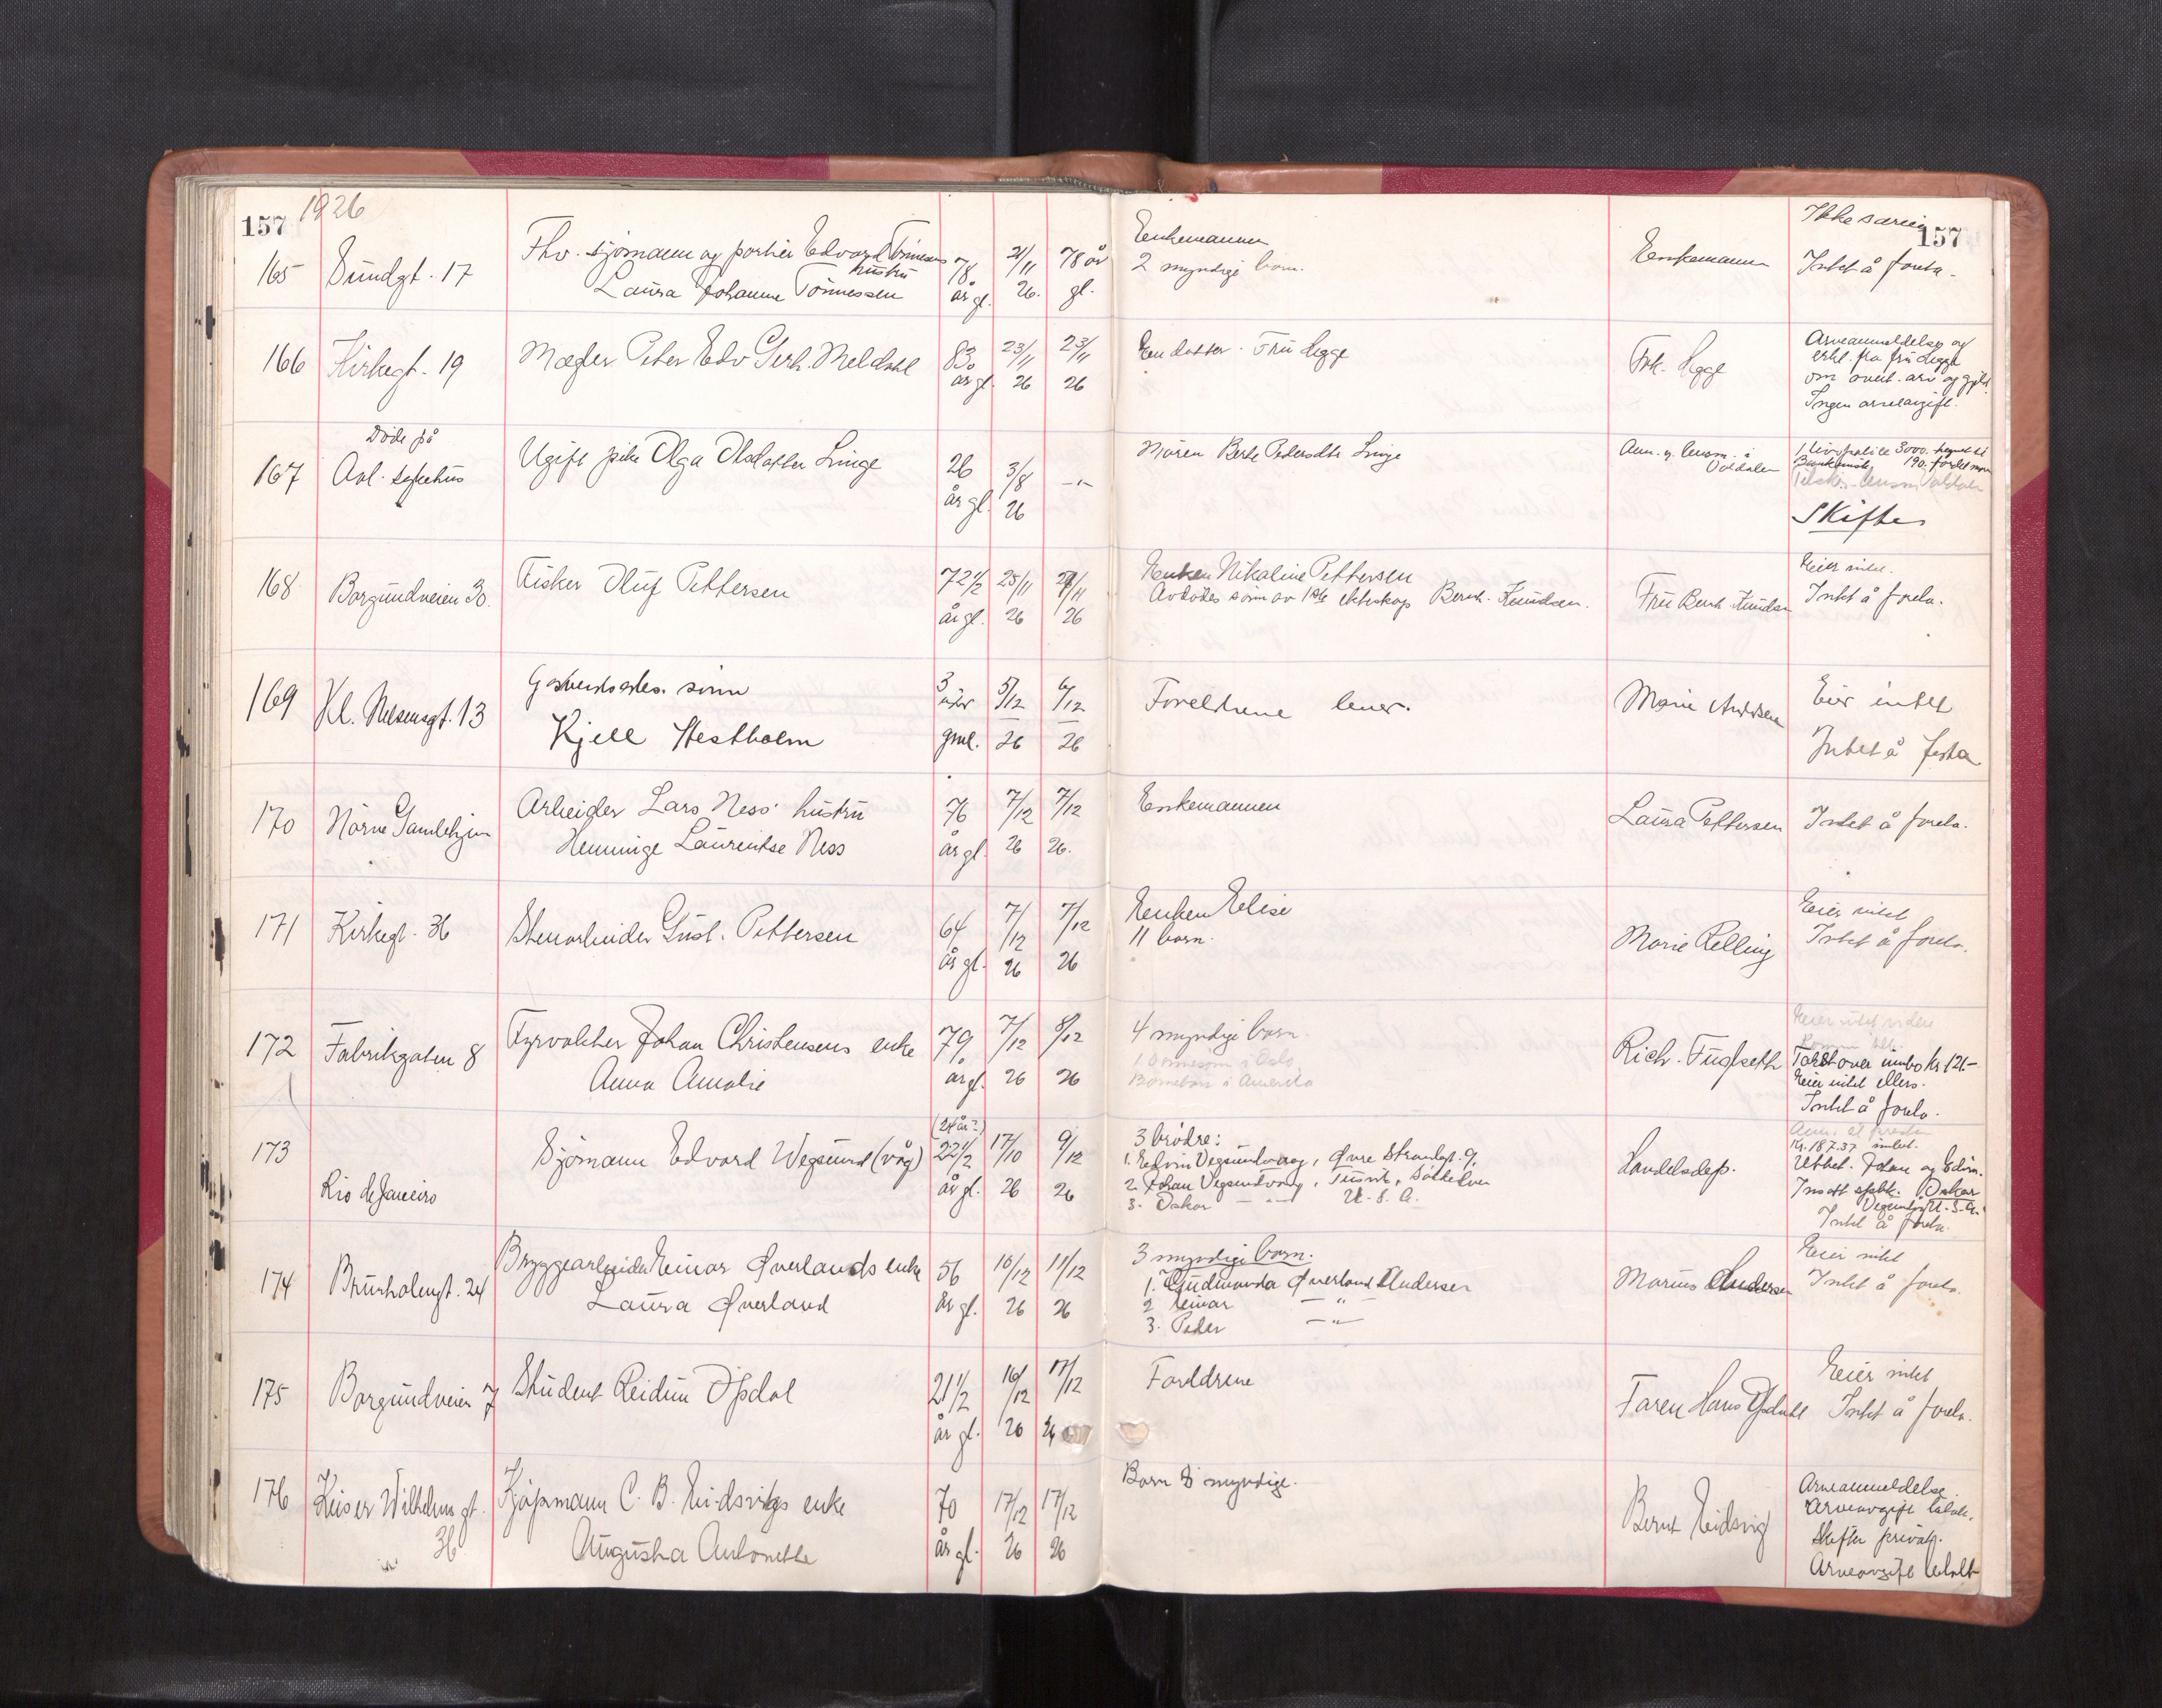 157 1926
165 Sundgt. 17
Fhv. sjömann og portier Edvard Tönnesens
hustru
Laura Johanne Tönnessen
78
år gl.
21/11
26.
78 år
gl.
Enkemannen
2 myndige barn.
Enkemannen
Ikke særeie
157
Intet å foreta.
166 Kirkegt. 19
Mægler Peter Edv Gerh. Meldahl
83
år gl.
23/11
26
23/11
26
En datter. Fru Hegge
Frk. Hegge
Arveanmeldelse og
erkl. fra fru Hegge
om overt. arv og gjeld.
Ingen arveavgift.
Döde på
167 Aal. sykehus
Ugift pike Olga Olsdatter Linge
26
år gl.
3/8
26
-"-
Moren Berte Pedersdtr Linge
Anm. g. lensm. i
Valdalen
1 livspolise 3000.
190.
Skifter
168 Borgundveien 30.
Fisker Oluf Pettersen
72 1/2
år gl.
25/11
26
27/11
26
Enken Nikoline Pettersen
Avdödes sönn av 1ste ekteskap Bernh. Knudsen.
Fru Bernh. Knudsen
Eier intet.
Intet å foreta.
169 Kl. Nilsensgt. 13
sönn
Kjell Hestholm
3
uker
gml.
5/12
26
6/12
26
Foreldrene lever.
Marie Andersen
Eier intet
Intet å foreta
170 Nörve Gamlehjem
Arbeider Lars Ness' hustru
Henninge Laurentse Ness
76
år gl.
7/12
26
7/12
26.
Enkemannen
Laura Pettersen
Intet å foreta.
171 Kirkegt. 36
Stenarbeider Gust. Pettersen
64
år gl.
7/12
26
7/12
26
Enken Elise
11 barn.
Marie Relling
Eier intet
Intet å foreta.
172 Fabrikgaten 8
Fyrvokter Johan Christensens enke
Anna Amalie
79
år gl.
7/12
26
8/12
26
4 myndige barn.
i Oslo
Barnebarn i Amerika
Rich. Fuglseth
Eier intet videre
Takst over innbo kr 121.-
Eier intet ellers.
Intet å foreta.
173
Rio de Janeiro
Sjömann Edvard Wegsund (våg)
(24 år?)
22 1/2
år gl.
17/10
26
9/12
26
3 brödre:
1. Edvin Vegsundvaag, Övre Strandgt. 9,
2. Johan Vegsundvaag, Tusvik, Sökkelven
3. Oskar -"- U. S. A.
Handelsdep.
Kr. 187.37 innbet.
Utbet. Johan og Edvin.
Innsatt spbk. Oskar
Vegsund, U. S. A.
Intet å foreta.
174 Brunholmgt. 24
Bryggearbeider Einar Øverlands enke
Laura Øverland
56
år gl.
10/12
26
11/12
26
3 myndige barn.
1. Gudmunda Øverland Andersen
2 Einar -"-
3. Peder -"-
Marius Andersen
Eier intet
Intet å foreta.
175 Borgundveien 7
Student Reidun Opdal
21 1/2
år gl.
16/12
26
17/12
26
Foreldrene
Faren Hans Opdahl
Eier intet
Intet å foreta.
176 Keiser Wilhelms gt.
36
Kjöpmann C. B. Eidsvigs enke
Augusta Antonette
70
år gl.
17/12
26
17/12
26
Barn 8 myndige.
Bernt Eidsvig
Arveanmeldelse.
Arveavgift betalt.
Skifter privat.
Arveavgift betalt